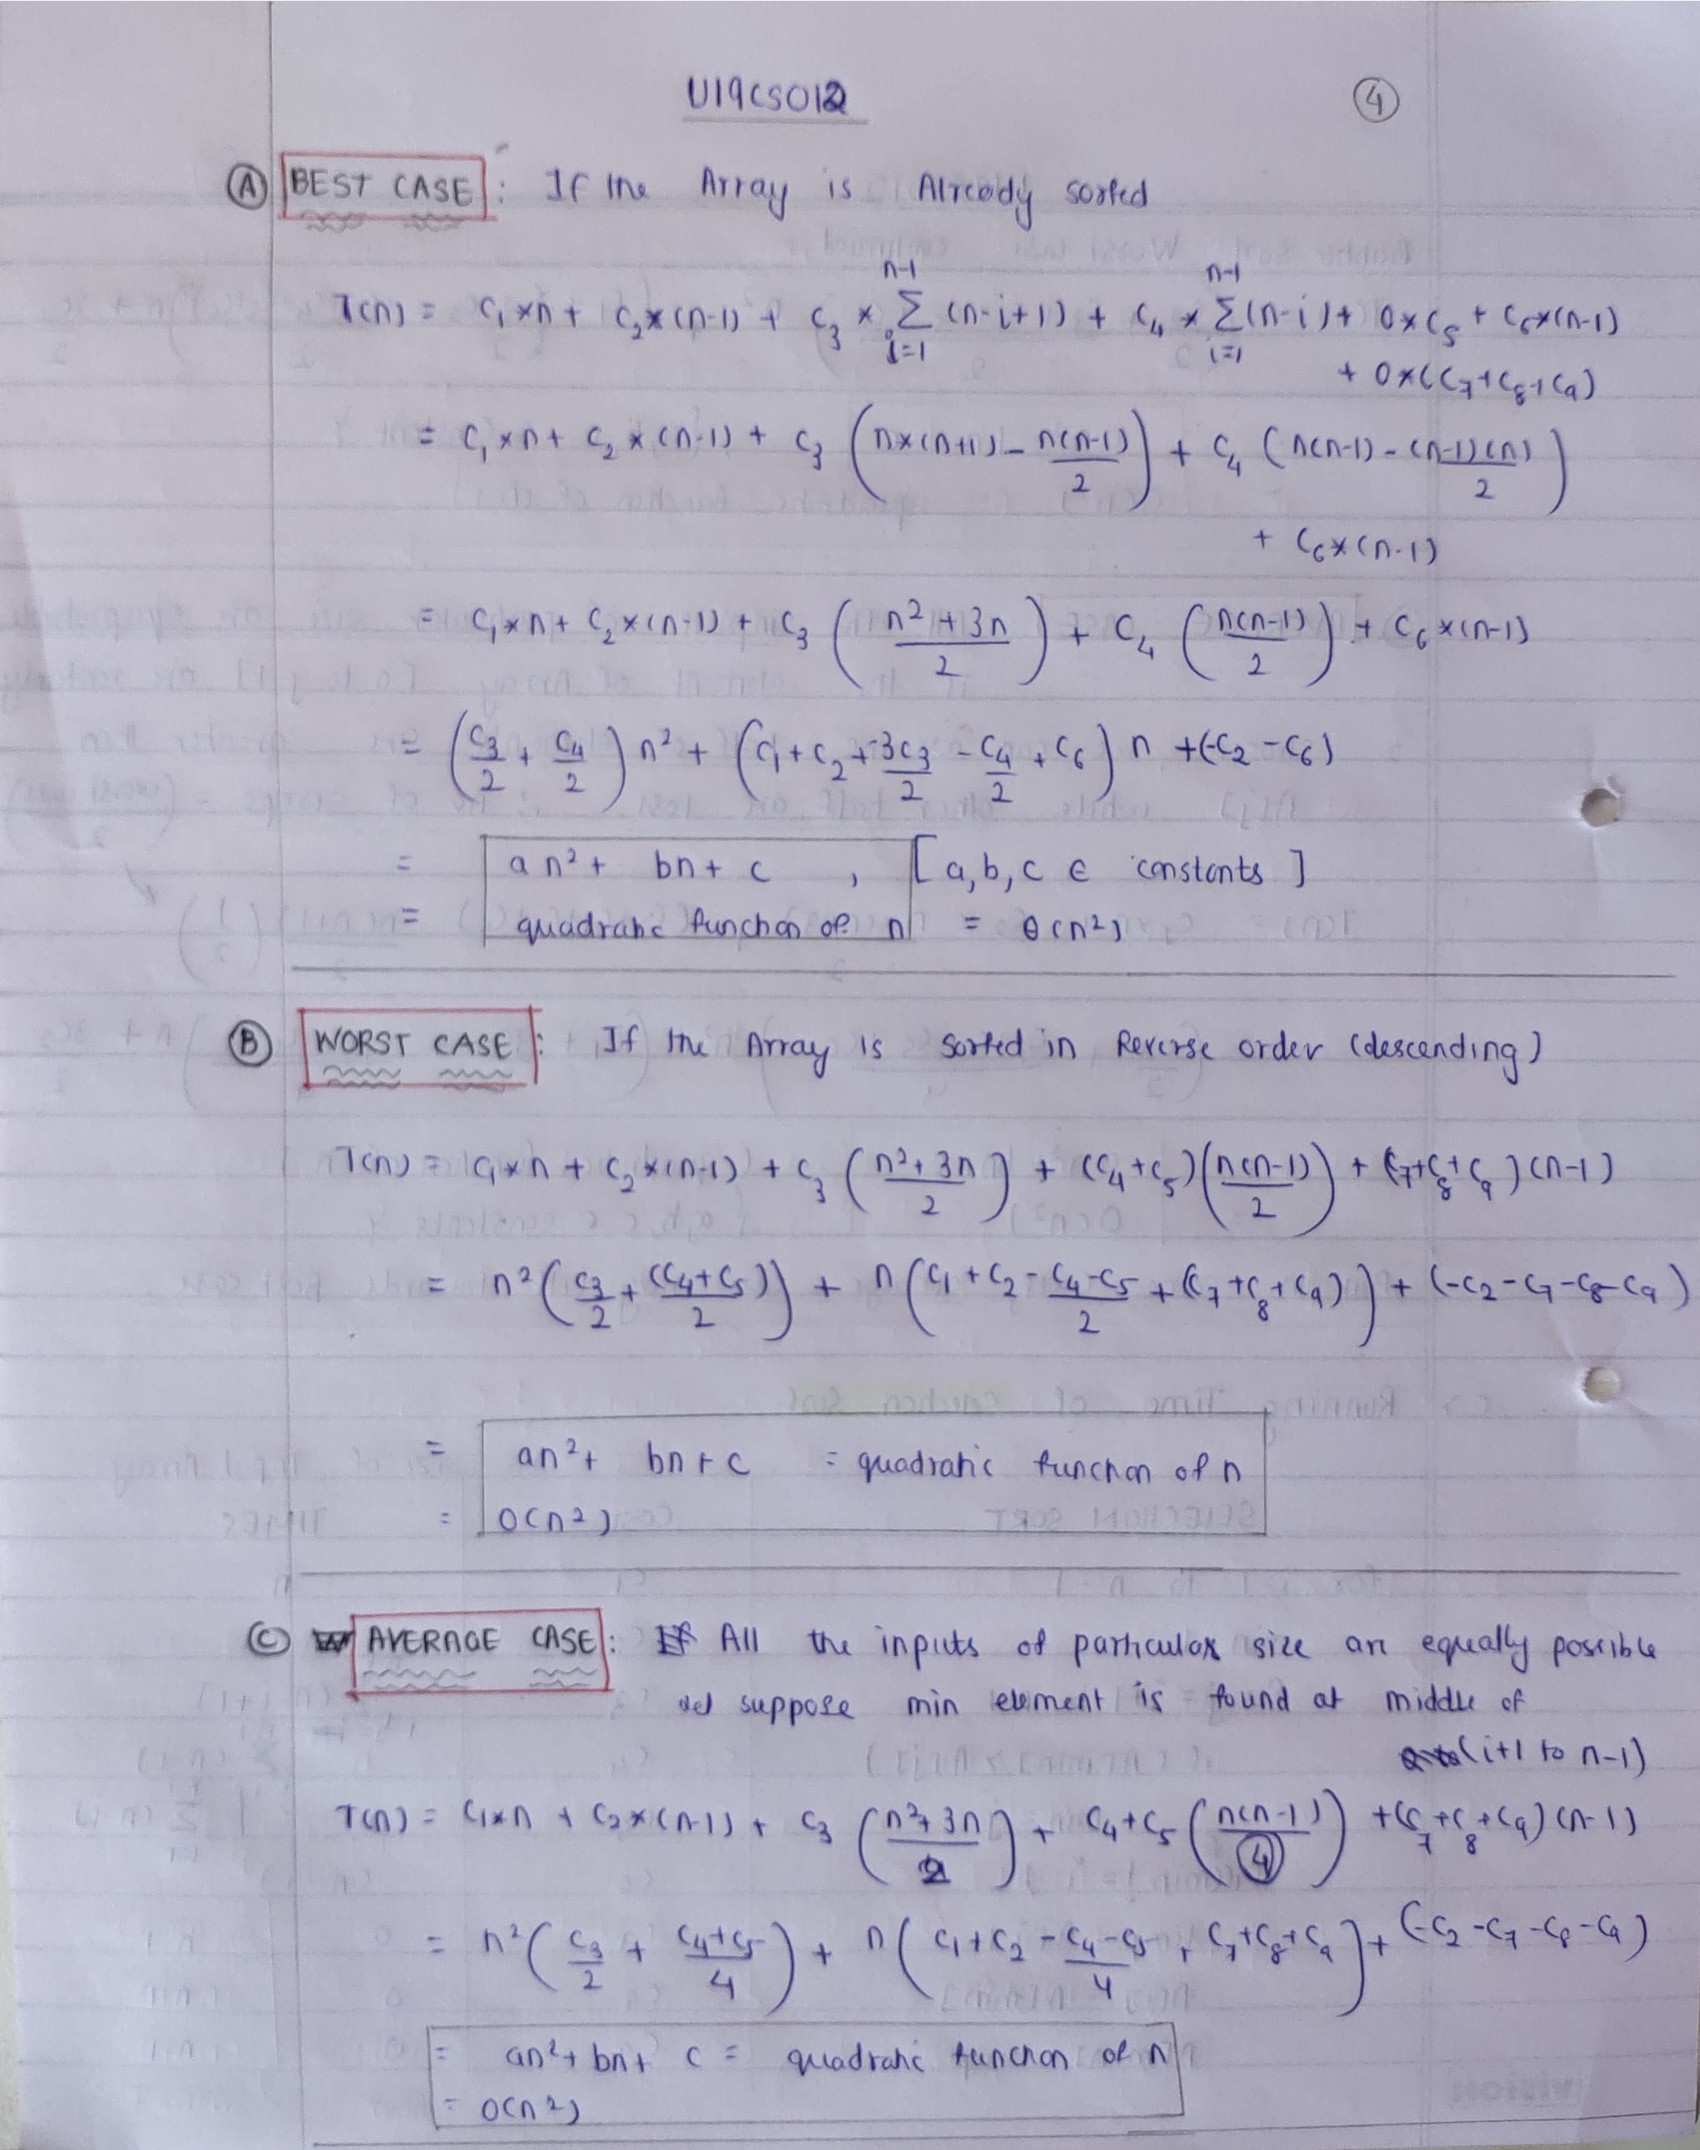 U19CS012
4
A BEST CASE : If the Array is Already sorted
T(n) = C₁×n + C₂×(n-1) + C₃ × ∑_{i=1}^{n-1} (n-i+1) + C₄ × ∑_{i=1}^{n-1} (n-i) + 0×C₅ + C₆×(n-1)
+ 0×(C₇+C₈+C₉)
= C₁×n + C₂×(n-1) + C₃ (n×(n+1) - n(n-1)/2) + C₄ (n(n-1) - (n-1)(n)/2)
+ C₆×(n-1)
= C₁×n + C₂×(n-1) + C₃ ((n²+3n)/2) + C₄ (n(n-1)/2) + C₆×(n-1)
= (C₃/2 + C₄/2) n² + (C₁+C₂+-3C₃/2 - C₄/2 + C₆) n + (-C₂-C₆)
= an² + bn + c , [a,b,c ∈ constants]
= quadratic function of n = θ(n²)
B WORST CASE : If the Array is sorted in Reverse order (descending)
T(n) = C₁×n + C₂×(n-1) + C₃ ((n²+3n)/2) + (C₄+C₅)(n(n-1)/2) + (C₇+C₈+C₉)(n-1)
= n² (C₃/2 + (C₄+C₅)/2) + n (C₁+C₂ - C₄-C₅/2 + (C₇+C₈+C₉)) + (-C₂-C₇-C₈-C₉)
= an² + bn + c = quadratic function of n
= O(n²)
C AVERAGE CASE : All the inputs of particular size are equally possible
suppose min element is found at middle of
(i+1 to n-1)
T(n) = C₁×n + C₂×(n-1) + C₃ ((n²+3n)/2) + C₄+C₅ (n(n-1)/4) + (C₇+C₈+C₉)(n-1)
= n² (C₃/2 + (C₄+C₅)/4) + n (C₁+C₂ - C₄-C₅/4 + C₇+C₈+C₉) + (-C₂-C₇-C₈-C₉)
= an² + bn + c = quadratic function of n
= O(n²)